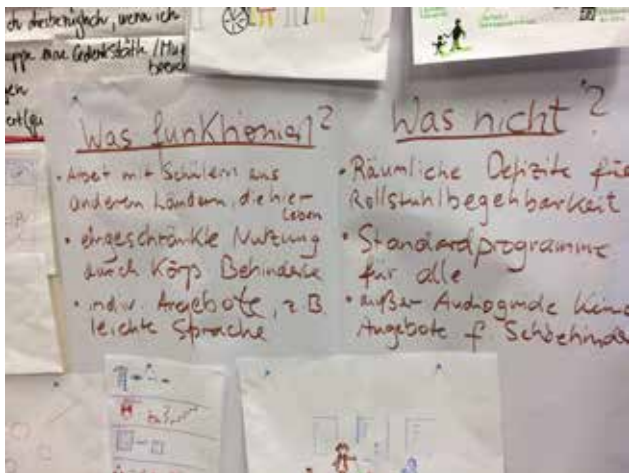 wenn ich
eine Gedenkstätte / Mu
Was funktioniert?
• Arbeit mit Schülern aus
anderen Ländern, die hier
leben
• eingeschränkte Nutzung
durch Körp Behinderte
• indiv. Angebote, z.B.
leichte Sprache
Was nicht?
• Räumliche Defizite für
Rollstuhlbegehbarkeit
• Standardprogramme
für alle
• außer Audioguide keine
Angebote f. Sehbehinde